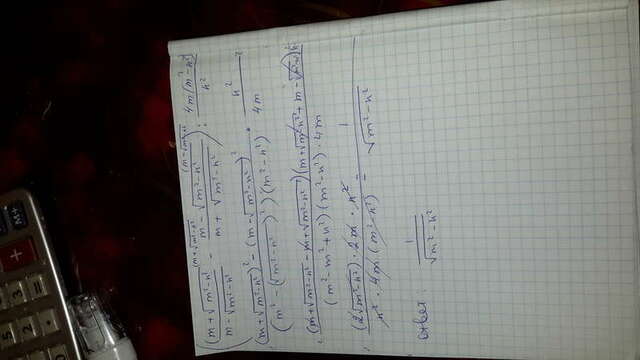 ( (m+√(m²-n²))/(m-√(m²-n²)) - (m-√(m²-n²))/(m+√(m²-n²)) ) : 4m√(m²-n²)/n²
((m+√(m²-n²))² - (m-√(m²-n²))²)/((m²-(√(m²-n²))²)(m²-n²)) · n²/4m
= (m+√(m²-n²)-m+√(m²-n²))(m+√(m²-n²)+m-√(m²-n²))n²/((m²-m²+n²)(m²-n²)·4m
= (2√(m²-n²))·2m·n²/(n²·4m(m²-n²)) = 1/√(m²-n²)
Ответ: 1/√(m²-n²)
M+
+